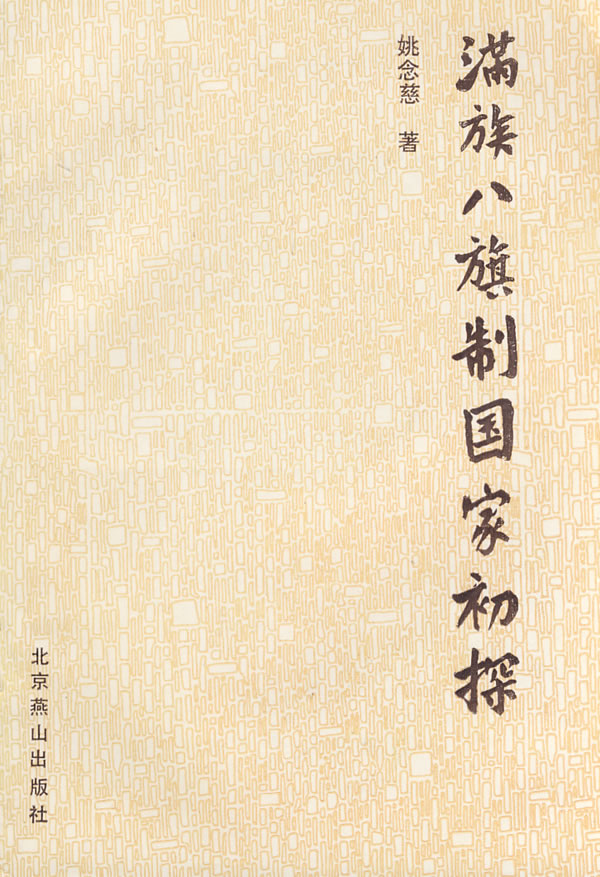 满族八旗制国家初探
姚念慈 著
北京燕山出版社